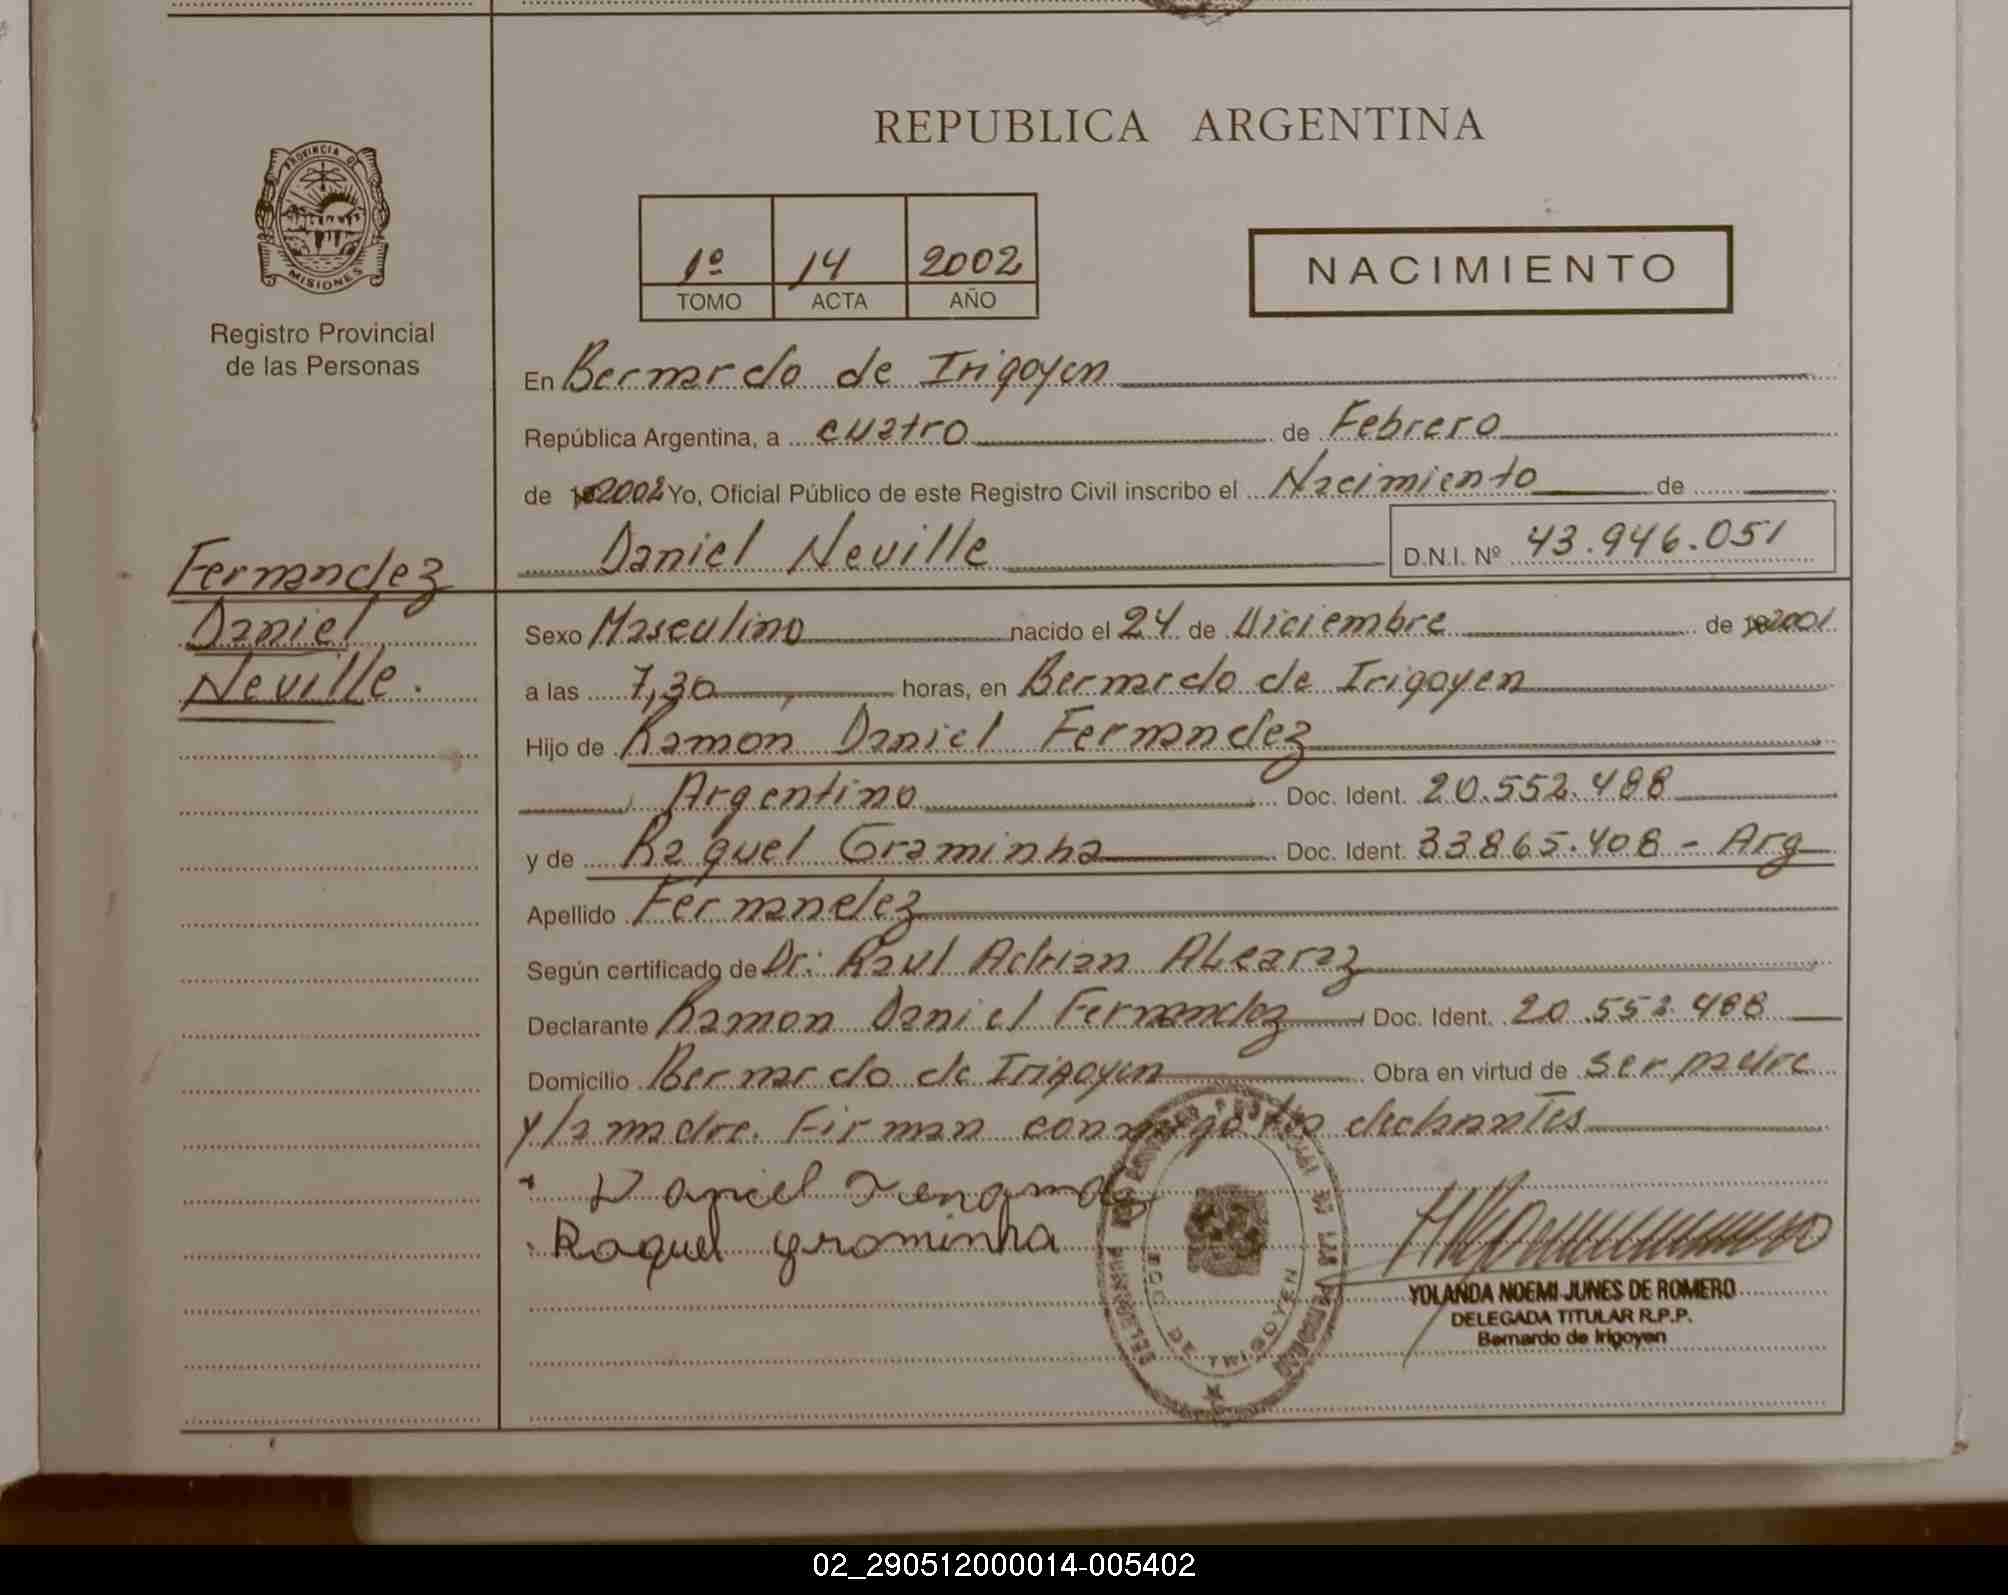 PROVINCIA DE
MISIONES
Registro Provincial
de las Personas
REPUBLICA ARGENTINA
1º 14 2002
TOMO ACTA AÑO
NACIMIENTO
En Bernardo de Irigoyen
República Argentina, a cuatro de Febrero
de 2002 Yo, Oficial Público de este Registro Civil inscribo el Nacimiento de
Daniel Neville D.N.I. Nº 43.946.051
Fernandez
Daniel
Neville.
Sexo Masculino nacido el 24 de Diciembre de 2001
a las 7,30 horas, en Bernardo de Irigoyen
Hijo de Ramon Daniel Fernandez
Argentino Doc. Ident. 20.552.488
y de Raquel Graminha Doc. Ident. 33865.408 - Arg
Apellido Fernandez
Según certificado de Dr. Raul Adrian Alcaraz
Declarante Ramon Daniel Fernandez Doc. Ident. 20.552.488
Domicilio Bernardo de Irigoyen Obra en virtud de ser padre
y la madre. Firman conmigo los
Daniel
Raquel graminha
BDO. DE IRIGOYEN
YOLANDA NOEMI JUNES DE ROMERO
DELEGADA TITULAR R.P.P.
Bernardo de Irigoyen
02_290512000014-005402